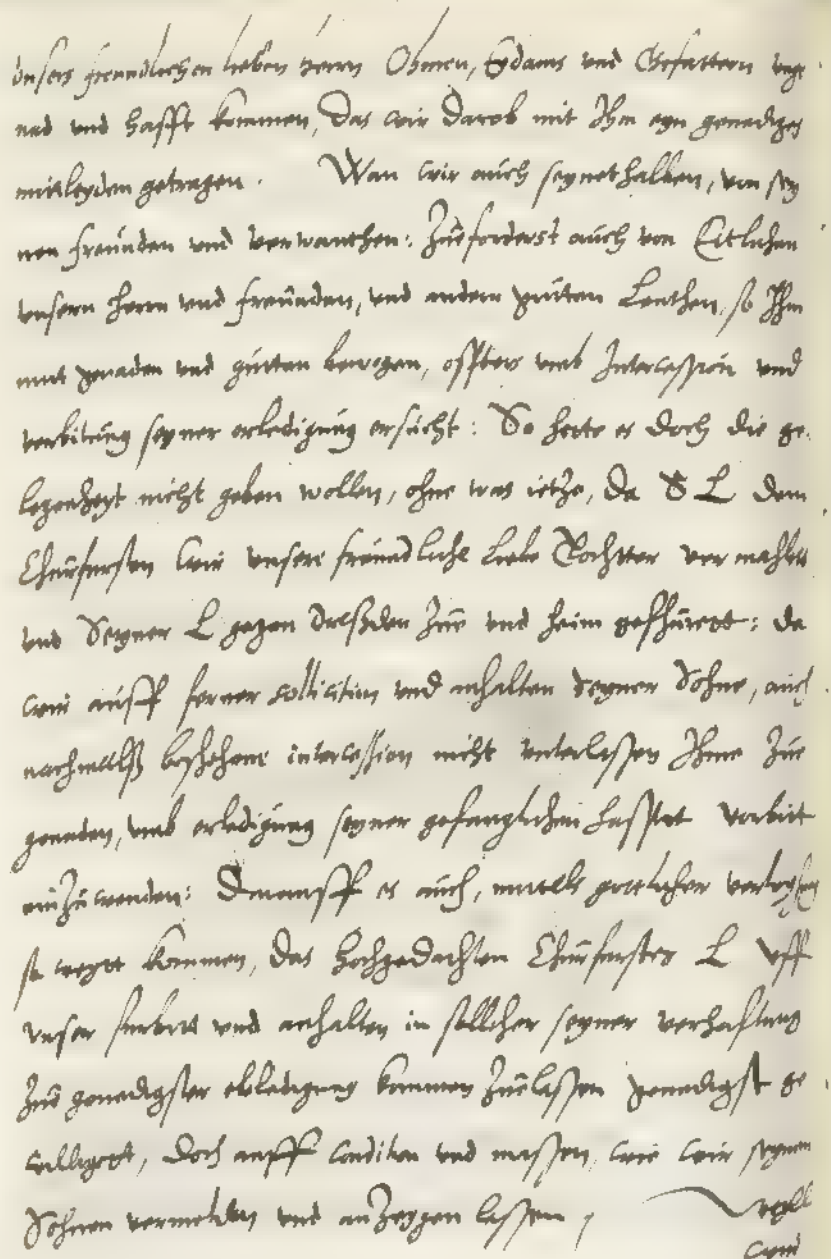 unsers freundlichen lieben herrn Ohmen, Eydams und Gefattern unge
nad und hafft kommen, Das wir darob mit Ihm eyn genediges
mitleyden getragen. Wan wir auch seynethalben, von sey
nen freunden und verwanthen: Zuforderst auch von Etlichen
unsern herrn und freunden, und andern gutten Leuthen, so Ihm
mit genaden und gutten bewogen, offters umb Intercession und
verbittung seyner erledigung ersucht: So hette es doch die ge
legenheyt nicht geben wollen, ohne was ietzo, da S L dem
Churfursten wir unsere freundliche liebe Tochter vermahlet
und Seyner L gegen Dreßden zu und heim gefhuret: da
wir auff ferner sollicition und anhalten seyner Sohne, auch
nachmalß beschehene intercession nicht unterlassen Ihme zu
genaden, umb erledigung seyner gefanglichen hafftet vorbitt
einzuwenden: Darauff es auch, mittels gottlicher verleyhung
so weyt kommen, das hochgedachten Churfursten L uff
unser furbitt und anhalten in sollcher seyner verhafftung
zu genedigster erledigung kommen zu lassen genedigst ge
willigett, doch auff Condition und massen, wie wir seynen
Sohnen vermelden und anzeygen lassen,
wir